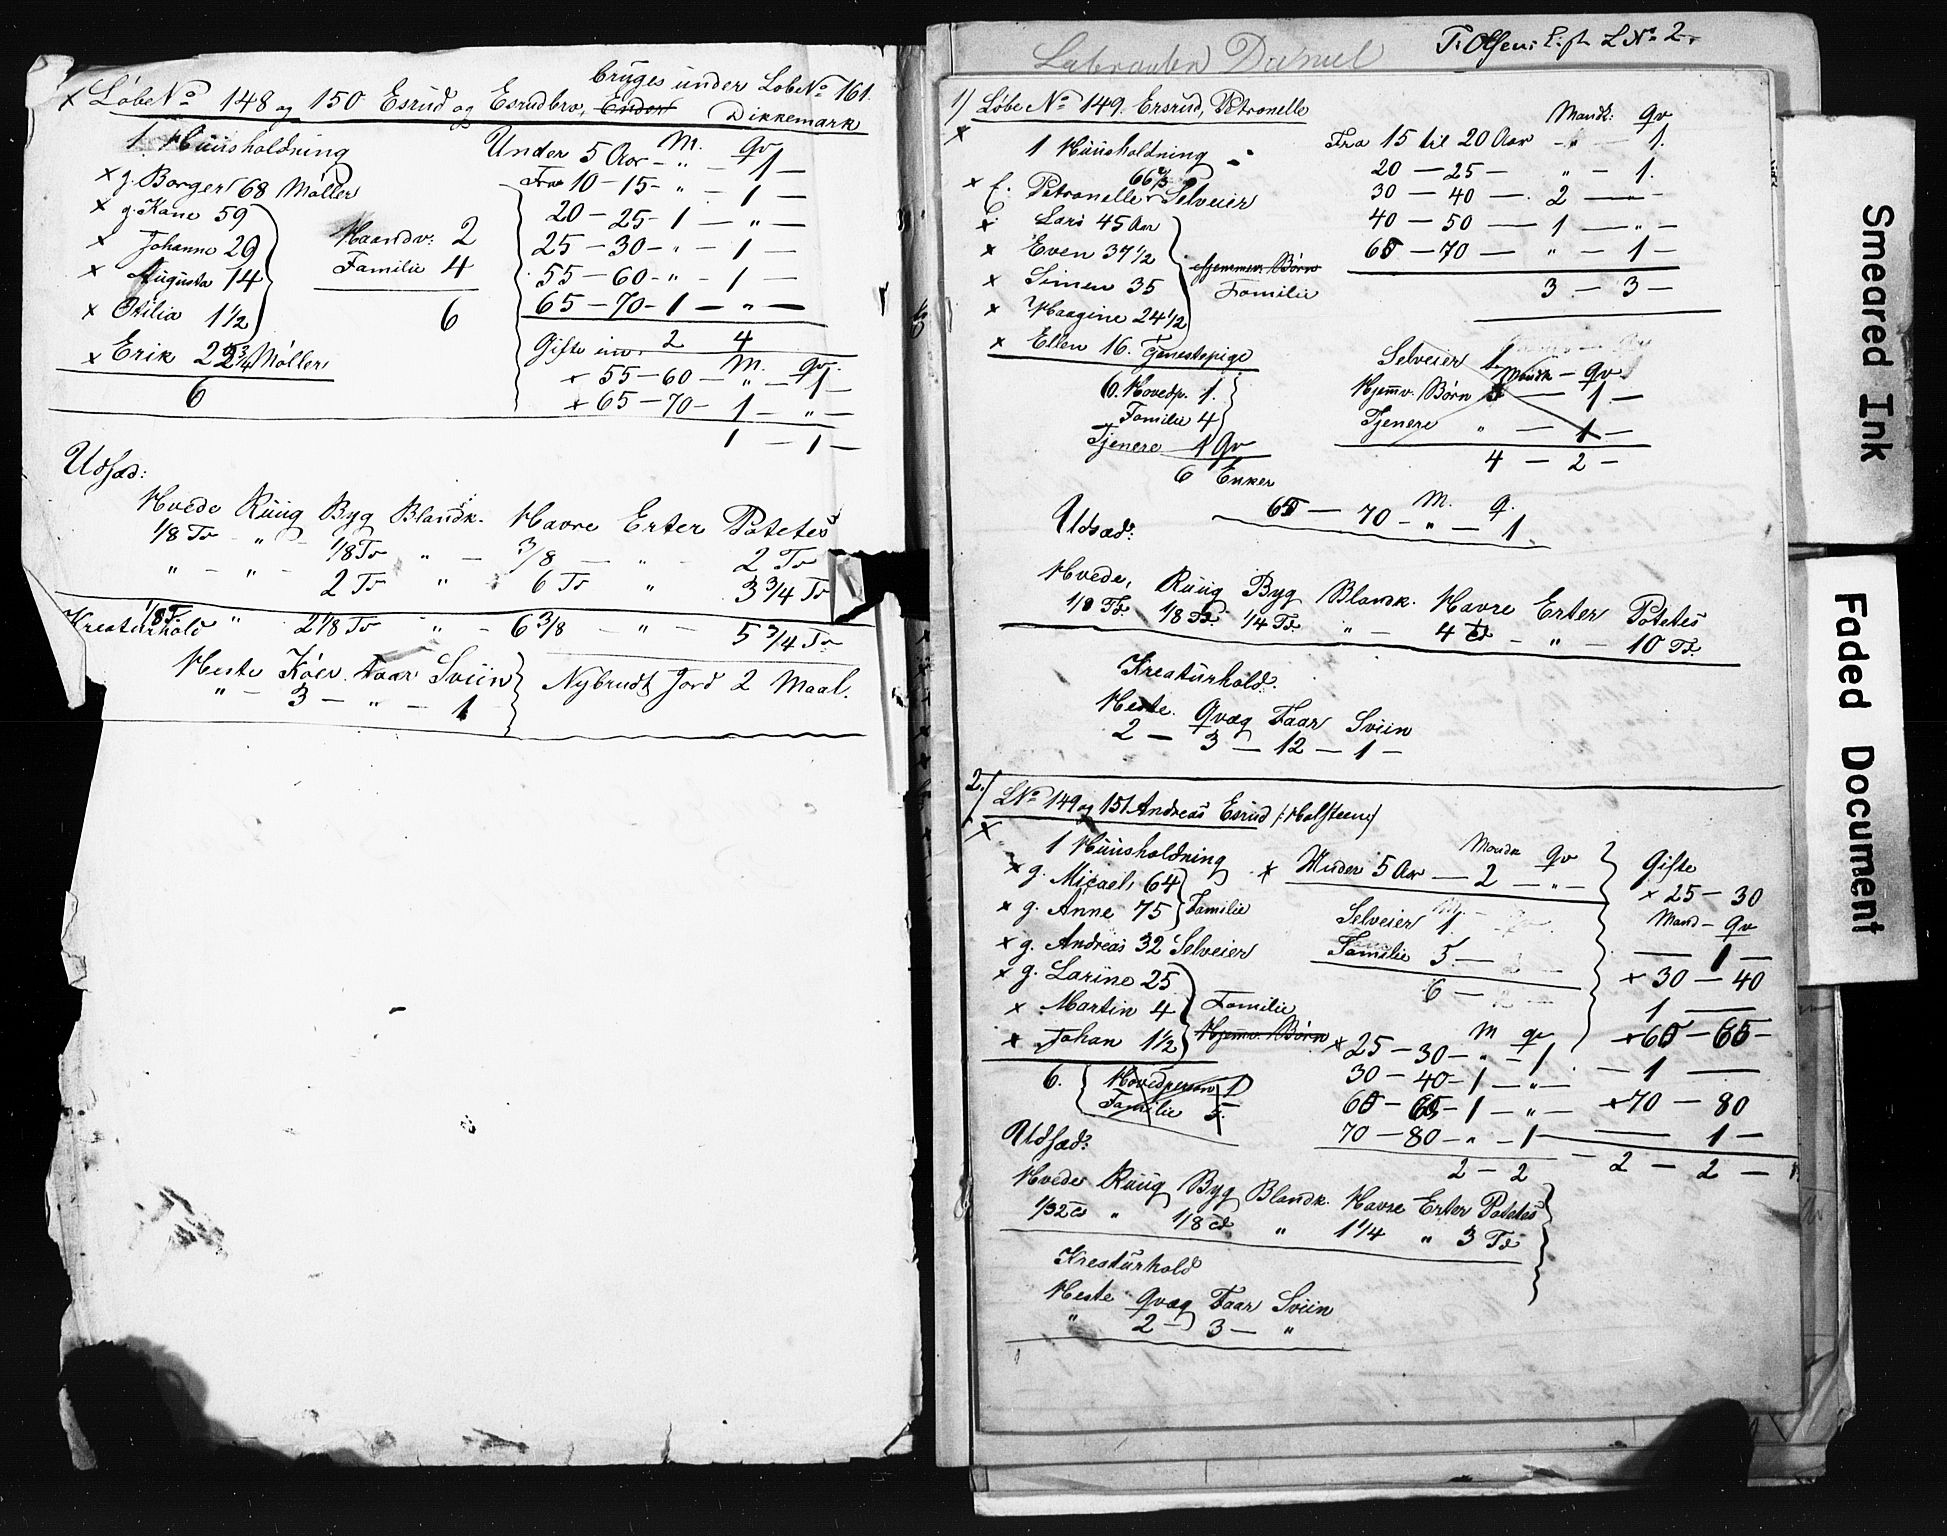 bruges under LobeNo 161.
x LøbeNo 148 og 150 Esrud og Esrudbro, Under Dikkemark
1 Huusholdning
x g. Borger 68 Møller
x g. Kone 59
x Johanne 29
x Augusta 14
x Otilia 1 1/2
x Erik 22 3/4 Møller
6
Haandv: 2
Familie 4
6
M. Qv
Under 5 Aar - " - 1 -
Fra 10 - 15 - " - 1 -
20 - 25 - 1 - " -
25 - 30 - " - 1 -
55 - 60 - " - 1 -
65 - 70 - 1 - " -
2 4
Gifte
M. Qv.
x 55 - 60 - " - 1 -
x 65 - 70 - 1 - " -
1 - 1 -
Udsæd:
Hvede Ruug Byg Blandk. Havre Erter Potetes
1/8 Tr - " - 1/8 Tr " - 3/8 - " - 2 Tr
" - " - 2 Tr " 6 Tr " 3 3/4 Tr
1/8 T. " 2 1/8 Tr " - 6 3/8 - " - 5 3/4 Tr
Kreaturhold
Heste Køer Faar Sviin
" - 3 - " - 1
Nybrudt Jord 2 Maal.
T. Olsen: L No 2.
1) Løbe No 149. Ersrud, Petronelle
x
1 Huusholdning
66 1/2
x E. Petronelle Selveier
x Lars 45 Aar
x Even 37 1/2
x Simen 35
x Haagine 24 1/2
x Ellen 16. Tjenestepige
Hjemmev. Børn
Familie
6. Hovedp. 1.
Familie 4
Tjenere 1 Qv
6 Enker
Mandk: Qv
Fra 15 til 20 Aar - " - 1.
20 - 25 - " - 1.
30 - 40 - 2 - " -
40 - 50 - 1 - " -
65 - 70 - " - 1 -
3 - 3 -
Selveier 1
Mandk - Qv
Hjemv. Børn 3 - 1 -
Tjenere " - 1 -
4 - 2 -
M. Q.
65 - 70 - " - 1.
Udsæd:
Hvede, Ruug Byg Blandk. Havre Erter Potetes
1/8 Td. 1/8 Td. 1/4 Td. " - 4 Td - " - 10 Td.
Kreaturhold:
Heste. Qvæg Faar Sviin
2 - 3 - 12 - 1 -
2.) LNo 149 og 151 Andreas Esrud (: Holsteen:)
x
1 Huusholdning
x g. Micael, 64
x g. Anne 75
Familie
x g. Andreas 32 Selveier
x g. Larine 25
x Martin 4
x Johan 1 1/2
Familie
Hjemv. Børn
6. Hovedperson 1
Familie 5.
Mandk Qv
x Under 5 Aar - 2 - " -
Selveier 1.
Familie 5. -
6 -
M qv
x 25 - 30 - " - 1
30 - 40 - 1 - " -
60 - 65 - 1 - " -
70 - 80 - " - 1
2 - 2
Gifte
x 25 - 30
Mand - Qv
1 -
x 30 - 40
1
x 60 - 65 -
1
x 70 - 80
1 -
2 - 2 -
Udsæd:
Hvede Ruug Byg Blandk. Havre Erter Potetes
1/32 Td " 1/8 Td " 1 1/4 " 3 Td
Kreaturhold
Heste Qvæg Faar Sviin
" 2 - 3 - "
Smeared Ink
Faded Document